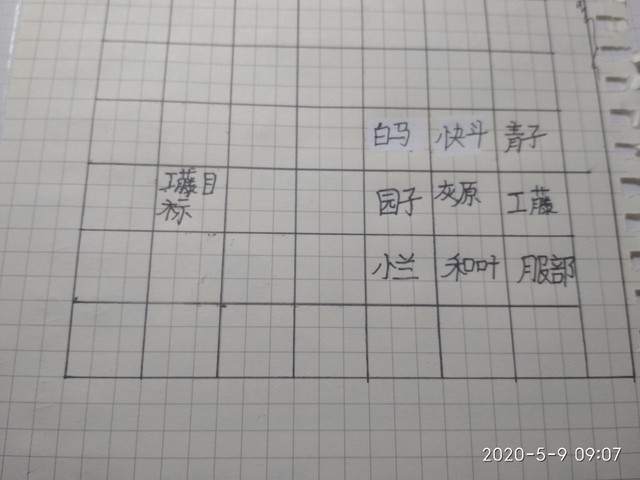 白马 快斗 青子
工藤目标
园子 灰原 工藤
小兰 和叶 服部
2020-5-9 09:07